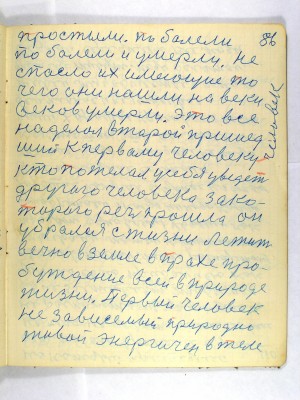 86
простыли. поболели
поболели и умерли. не
спасло их имеющие то
чего они нашли на веки
веков умерли. Это все
наделол второй пришед
ший к первому человеку человек
кто потелал у себя увидет
другого человека за ко-
торого реч прошла он
убрался с жизни лежит
вечно в земле в прахе про-
буждение всей в природе
жизни. Первый человек
не зависемый природно
живой энергичен в теле